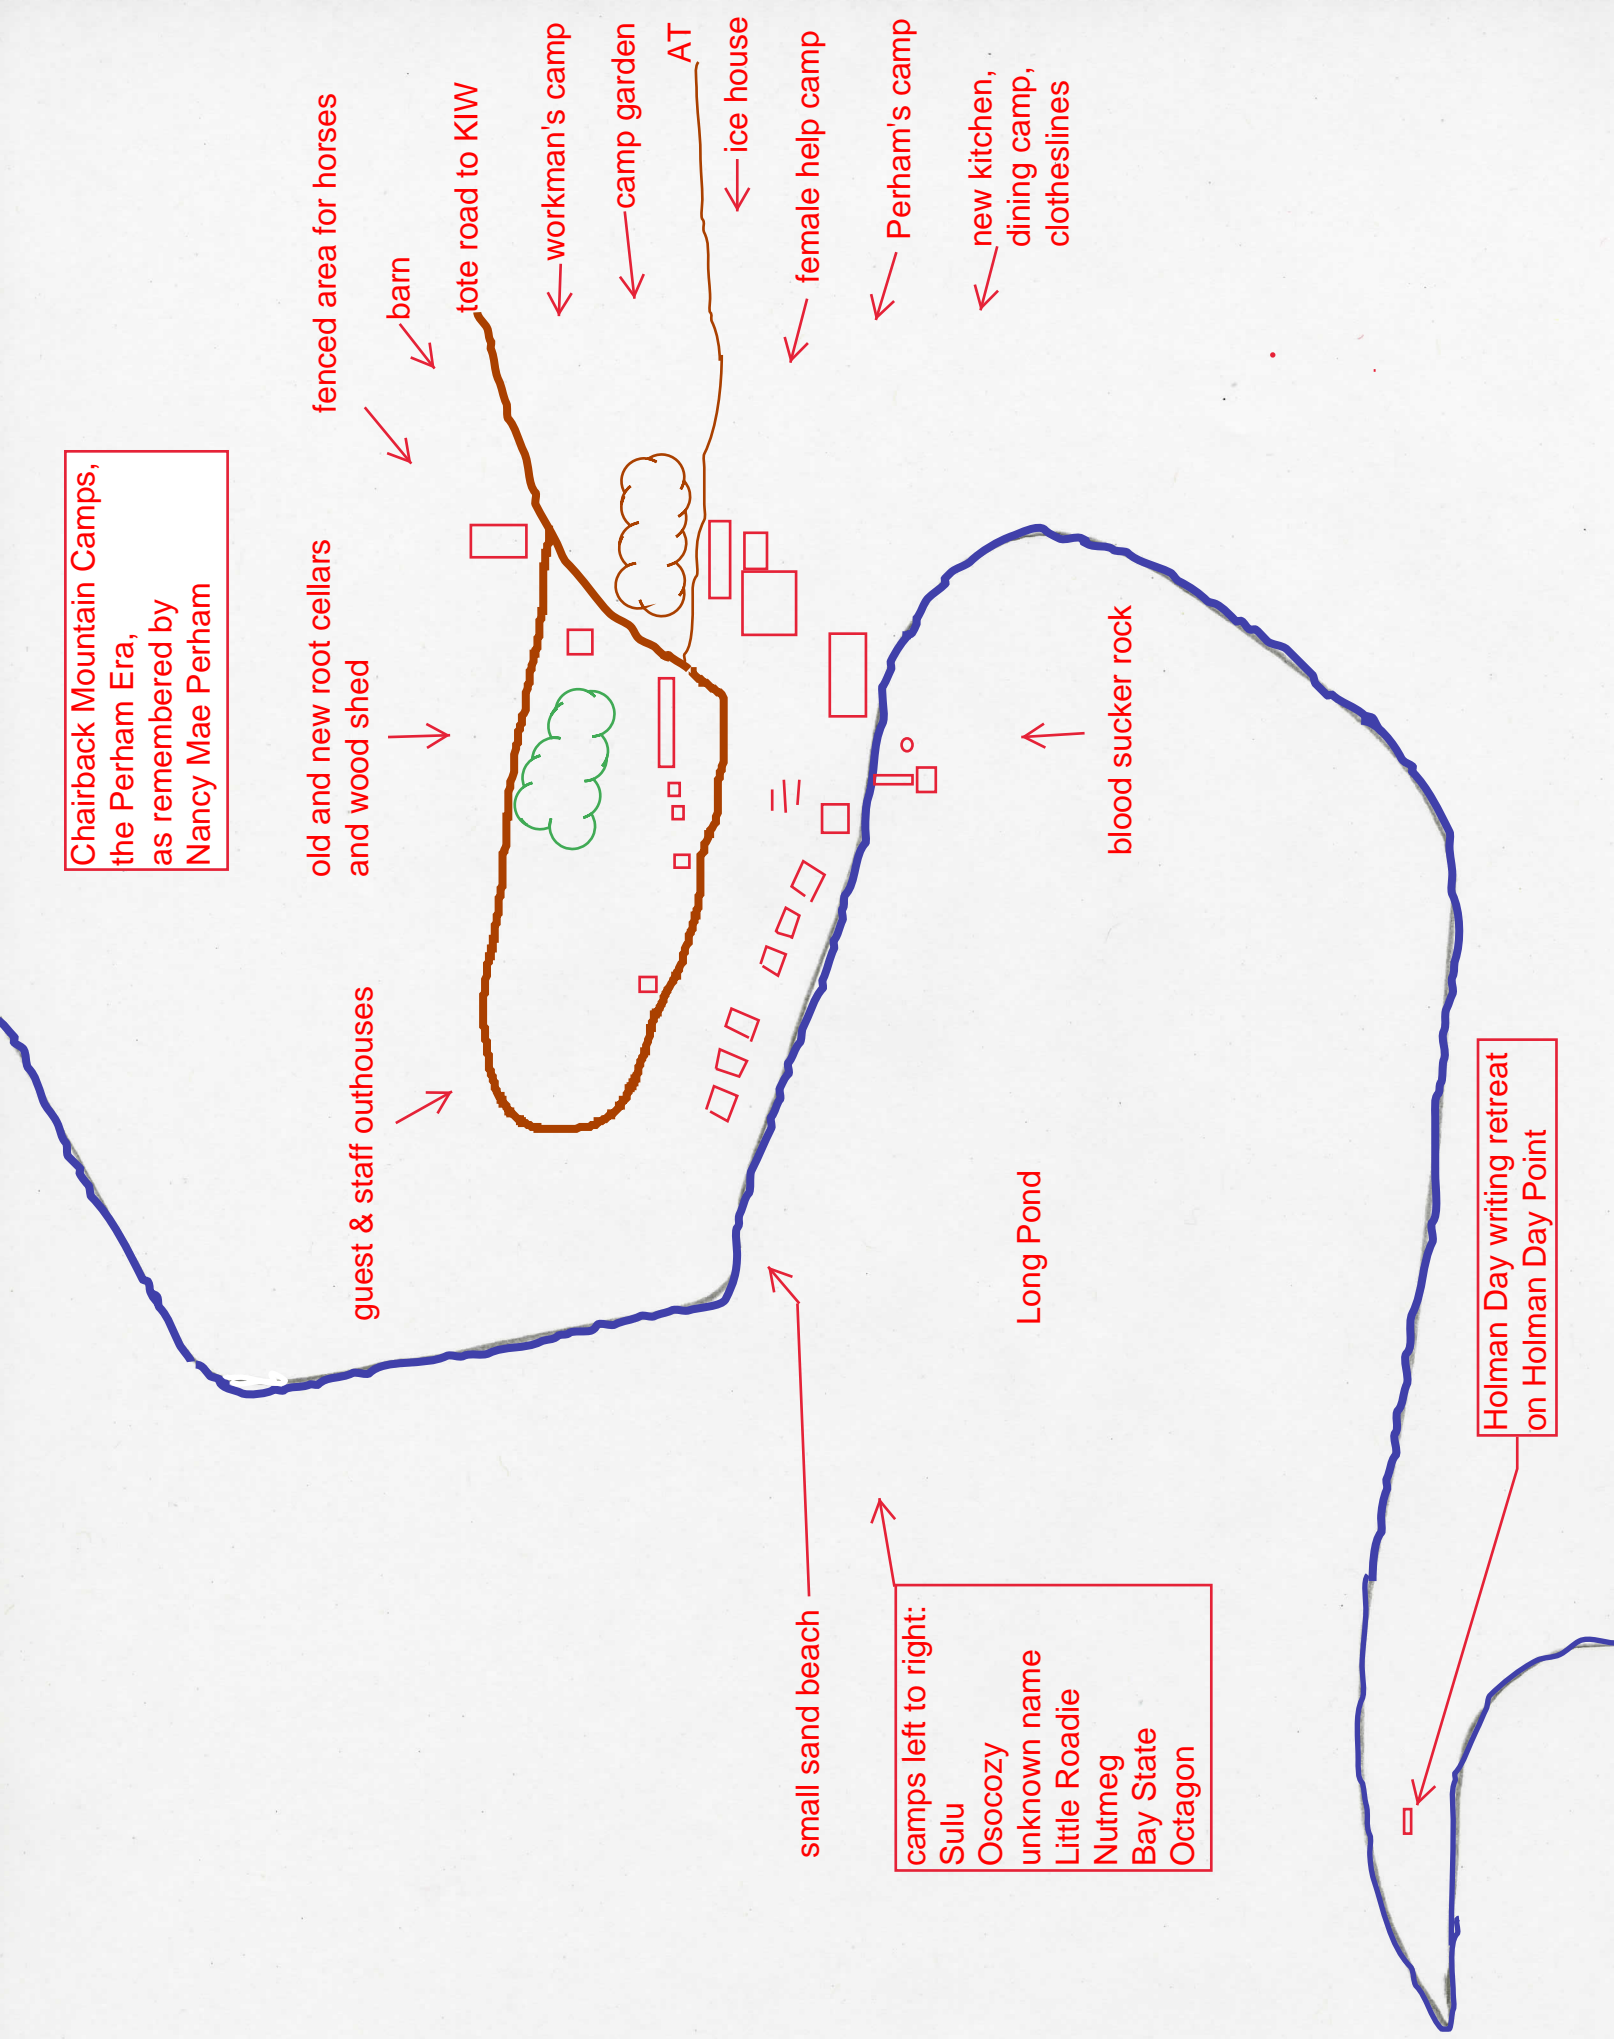 Chairback Mountain Camps,
the Perham Era,
as remembered by
Nancy Mae Perham
fenced area for horses
barn
tote road to KIW
workman's camp
camp garden
AT
ice house
female help camp
Perham's camp
new kitchen,
dining camp,
clotheslines
old and new root cellars
and wood shed
guest & staff outhouses
blood sucker rock
Long Pond
small sand beach
camps left to right:
Sulu
Osocozy
unknown name
Little Roadie
Nutmeg
Bay State
Octagon
Holman Day writing retreat
on Holman Day Point